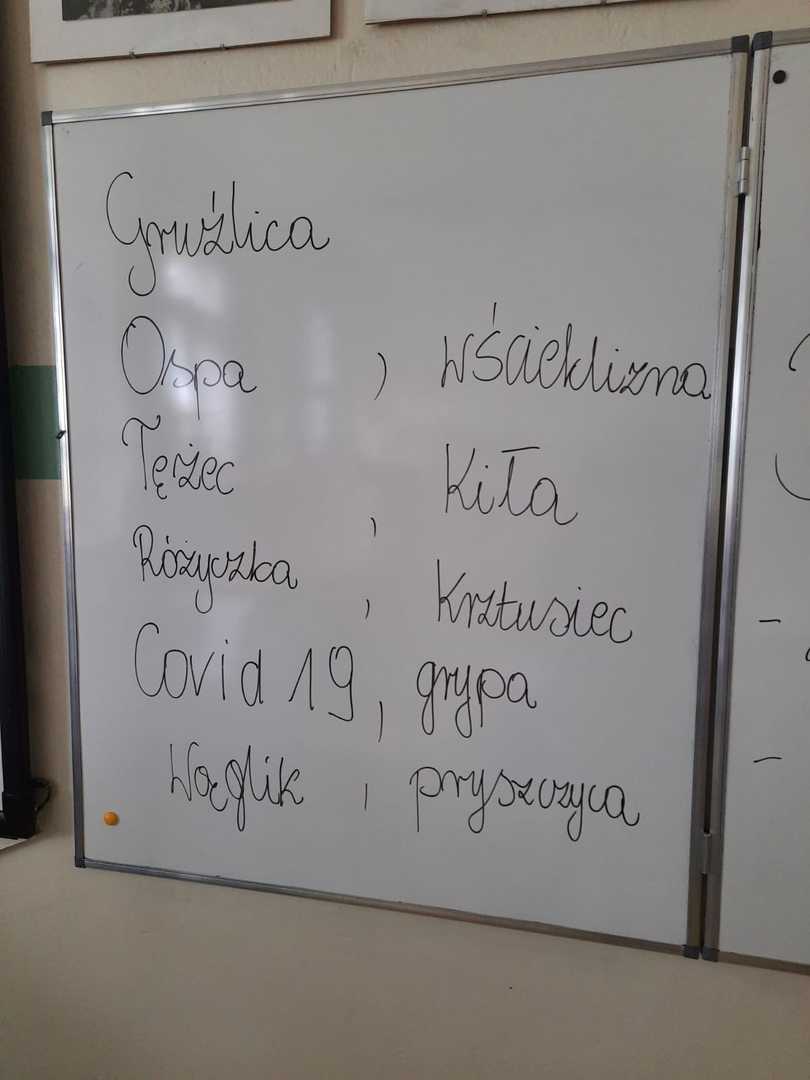 Gruźlica
Ospa , wścieklizna
Tężec , Kiła
Różyczka , Krztusiec
Covid 19, grypa
Wąglik , pryszczyca